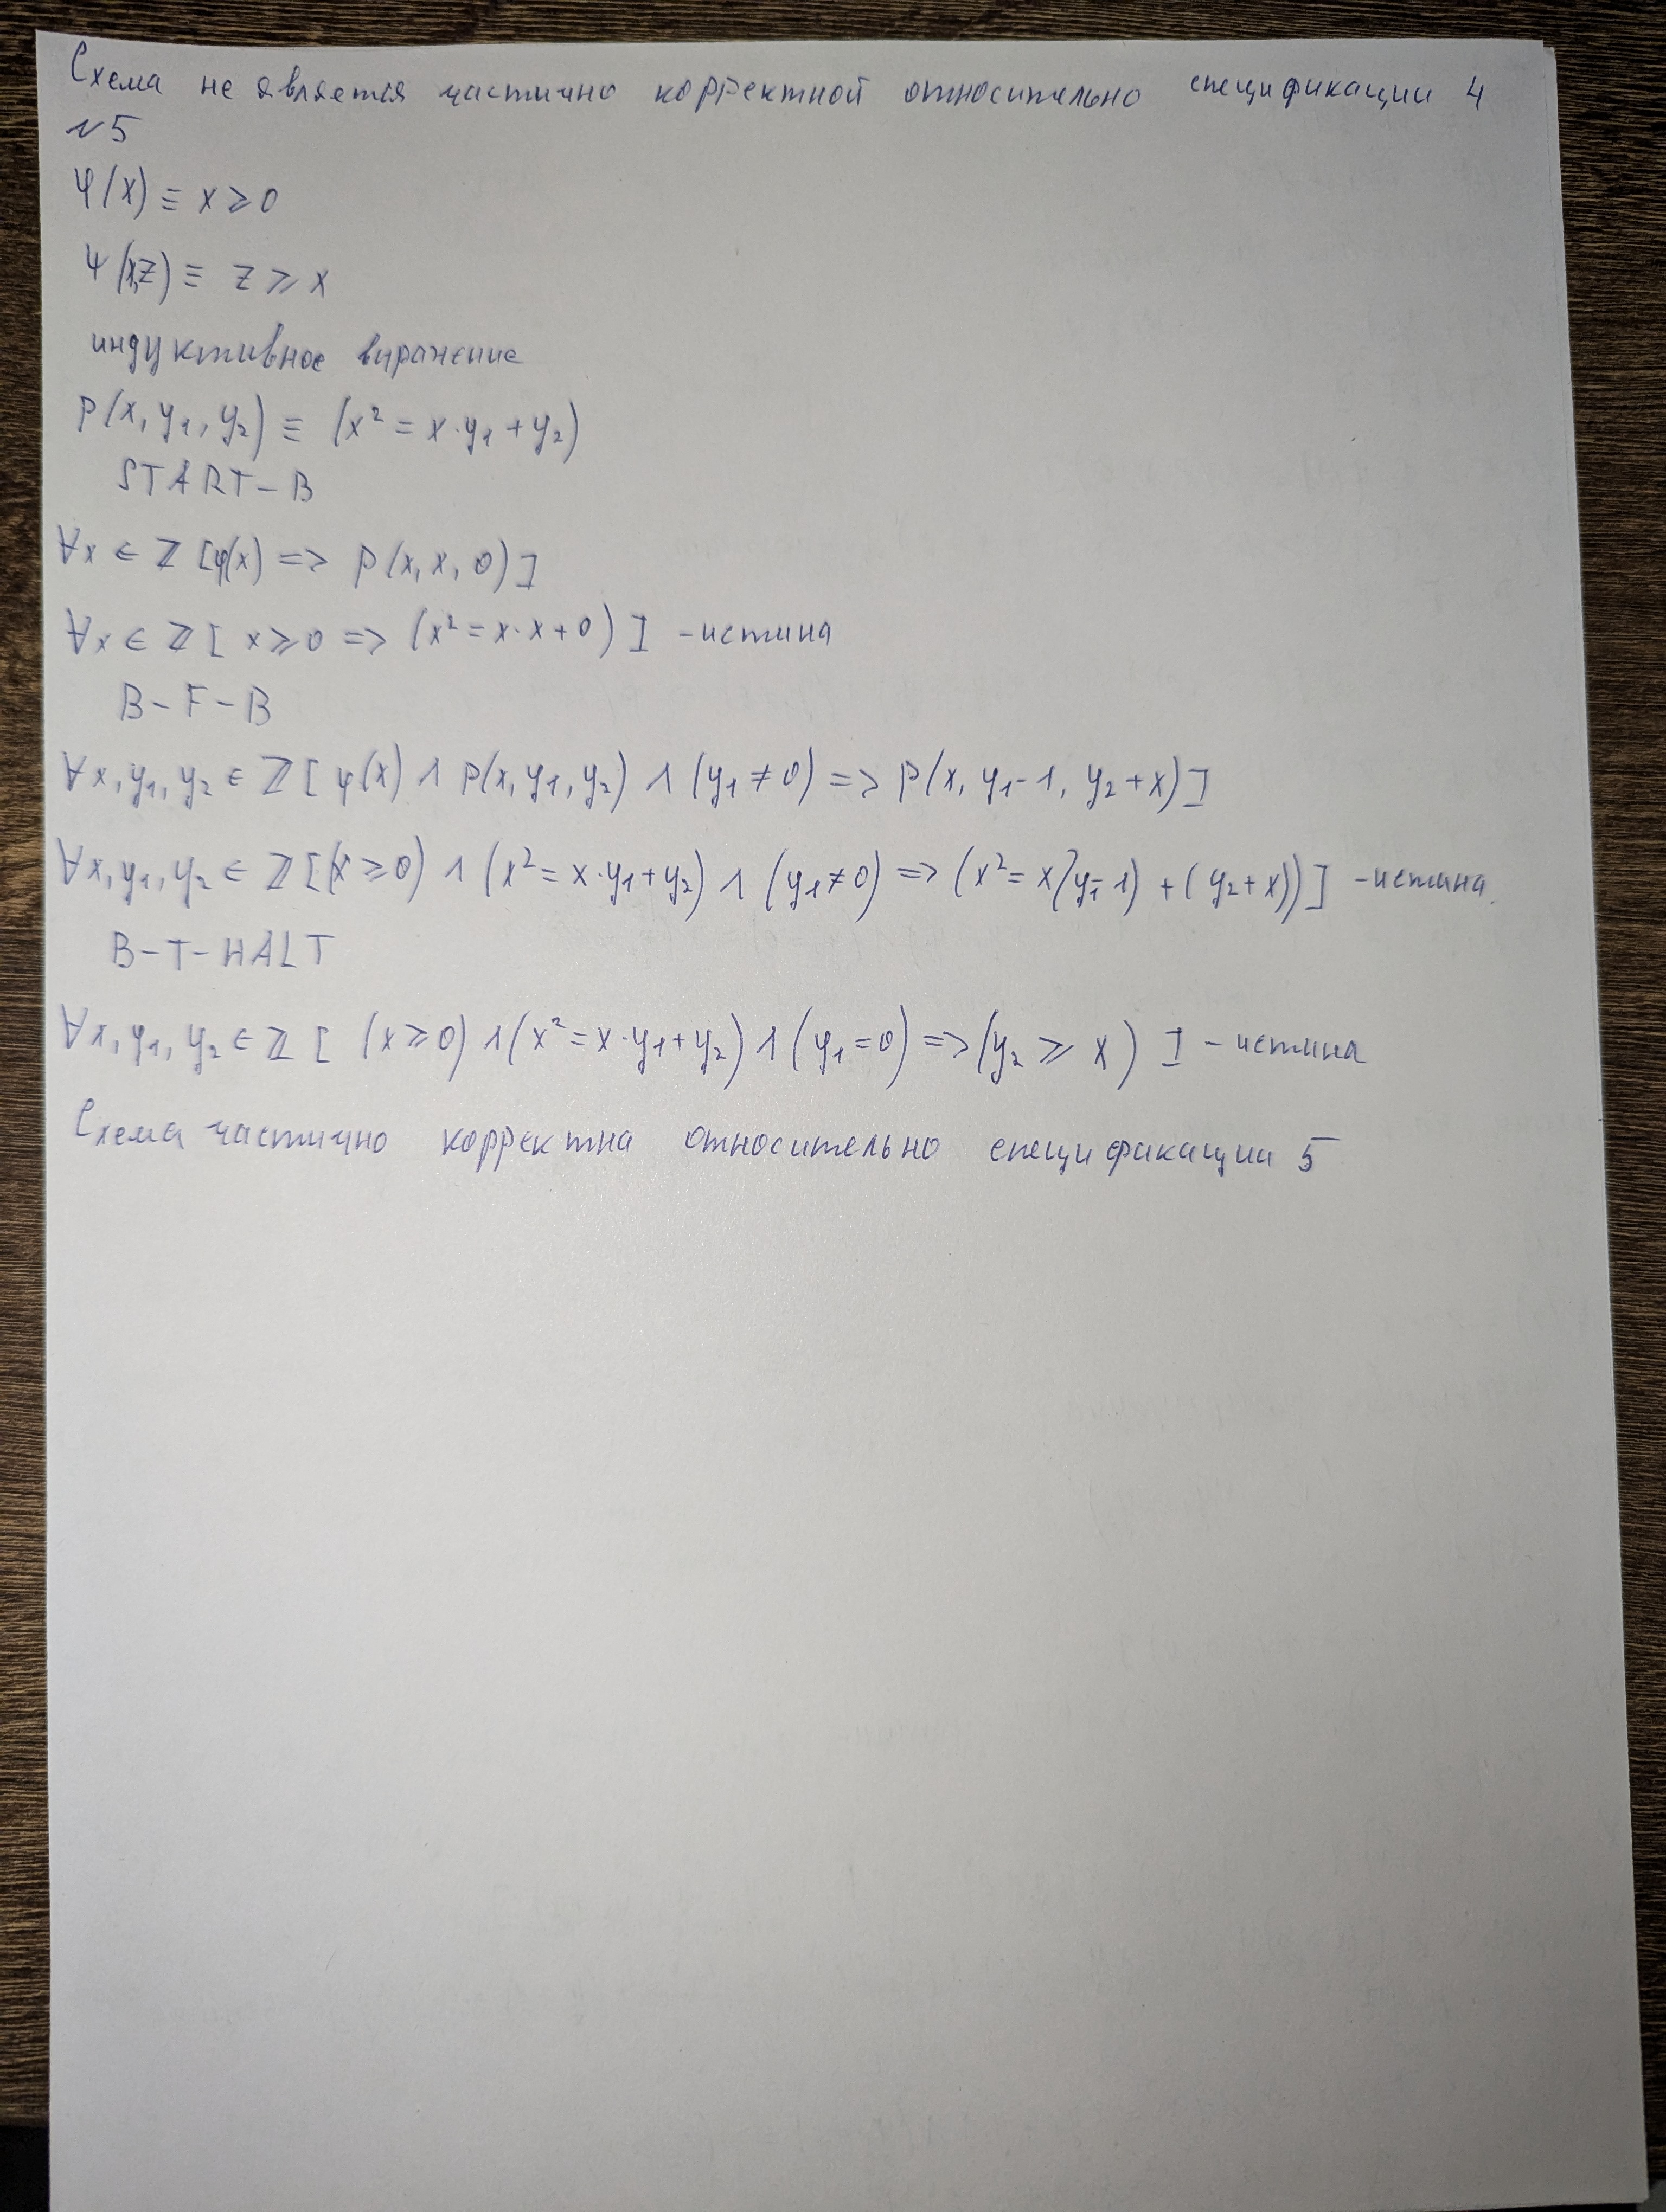 Схема не является частично корректной относительно спецификации 4
№5
φ(x) ≡ x ⩾ 0
Ψ(x,z) ≡ z ⩾ x
индуктивное выражение
P(x, y₁, y₂) ≡ (x² = x·y₁ + y₂)
START-B
∀x ∈ ℤ [φ(x) => P(x, x, 0)]
∀x ∈ ℤ [ x ⩾ 0 => (x² = x·x + 0) ] - истина
B-F-B
∀x, y₁, y₂ ∈ ℤ [ φ(x) ∧ P(x, y₁, y₂) ∧ (y₁ ≠ 0) => P(x, y₁-1, y₂+x) ]
∀x, y₁, y₂ ∈ ℤ [(x ⩾ 0) ∧ (x² = x·y₁ + y₂) ∧ (y₁ ≠ 0) => (x² = x(y₁-1) + (y₂+x))] - истина.
B-T-HALT
∀x, y₁, y₂ ∈ ℤ [ (x ⩾ 0) ∧ (x² = x·y₁ + y₂) ∧ (y₁ = 0) => (y₂ ⩾ x) ] - истина
Схема частично корректна относительно спецификации 5